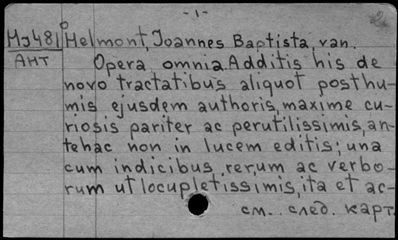 -1-
Mg481 Helmont, Joannes Baptista, van.
AHT Opera omnia. Additis his de
novo tractatibus aliquot posthu-
mis ejusdem authoris, maxime cu-
riosis pariter ac perutilissimis, an-
tehac non in lucem editis; una
cum indicibus rerum ac verbo-
rum ut locupletissimis, ita et ac-
см. след. карт.